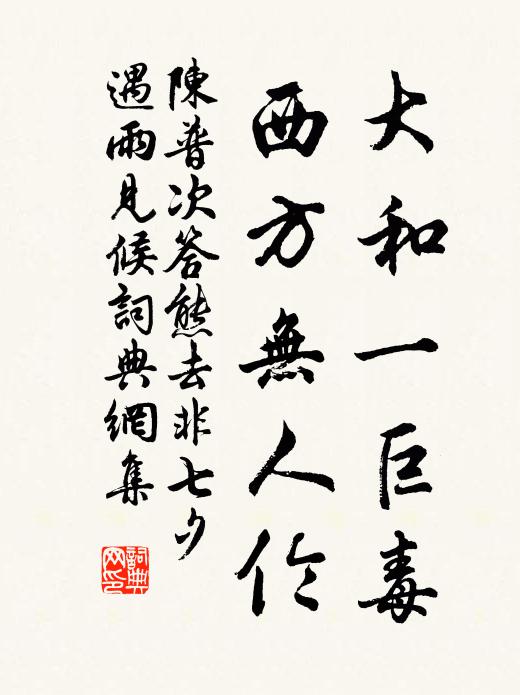 大和一巨毒
西方無人伶
陳普次答熊去非七夕
遇雨見候詞典網集
詞典網印